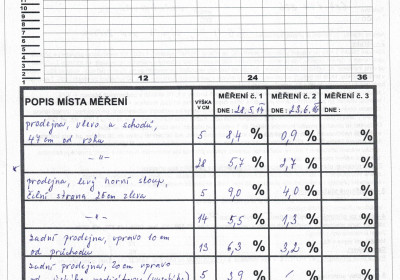 11
10
9
8
7
6
5
4
3
2
1
12 24 36
POPIS MÍSTA MĚŘENÍ VÝŠKA V CM MĚŘENÍ č. 1 MĚŘENÍ č. 2 MĚŘENÍ č. 3
DNE: 28.5.14 DNE: 23.6. DNE:
prodejna, vlevo u schodů,
47 cm od rohu 5 8,4 % 0,9 % %
— " — 28 5,7 % 2,7 % %
prodejna, levý horní sloup,
čelní strana 26 cm zleva 5 9,0 % 4,0 % %
— " — 14 5,5 % 1,3 % %
zadní prodejna, vpravo 10 cm
od průchodu 13 6,3 % 3,2 % %
zadní prodejna, 20 cm vpravo
5 3,9 % % %